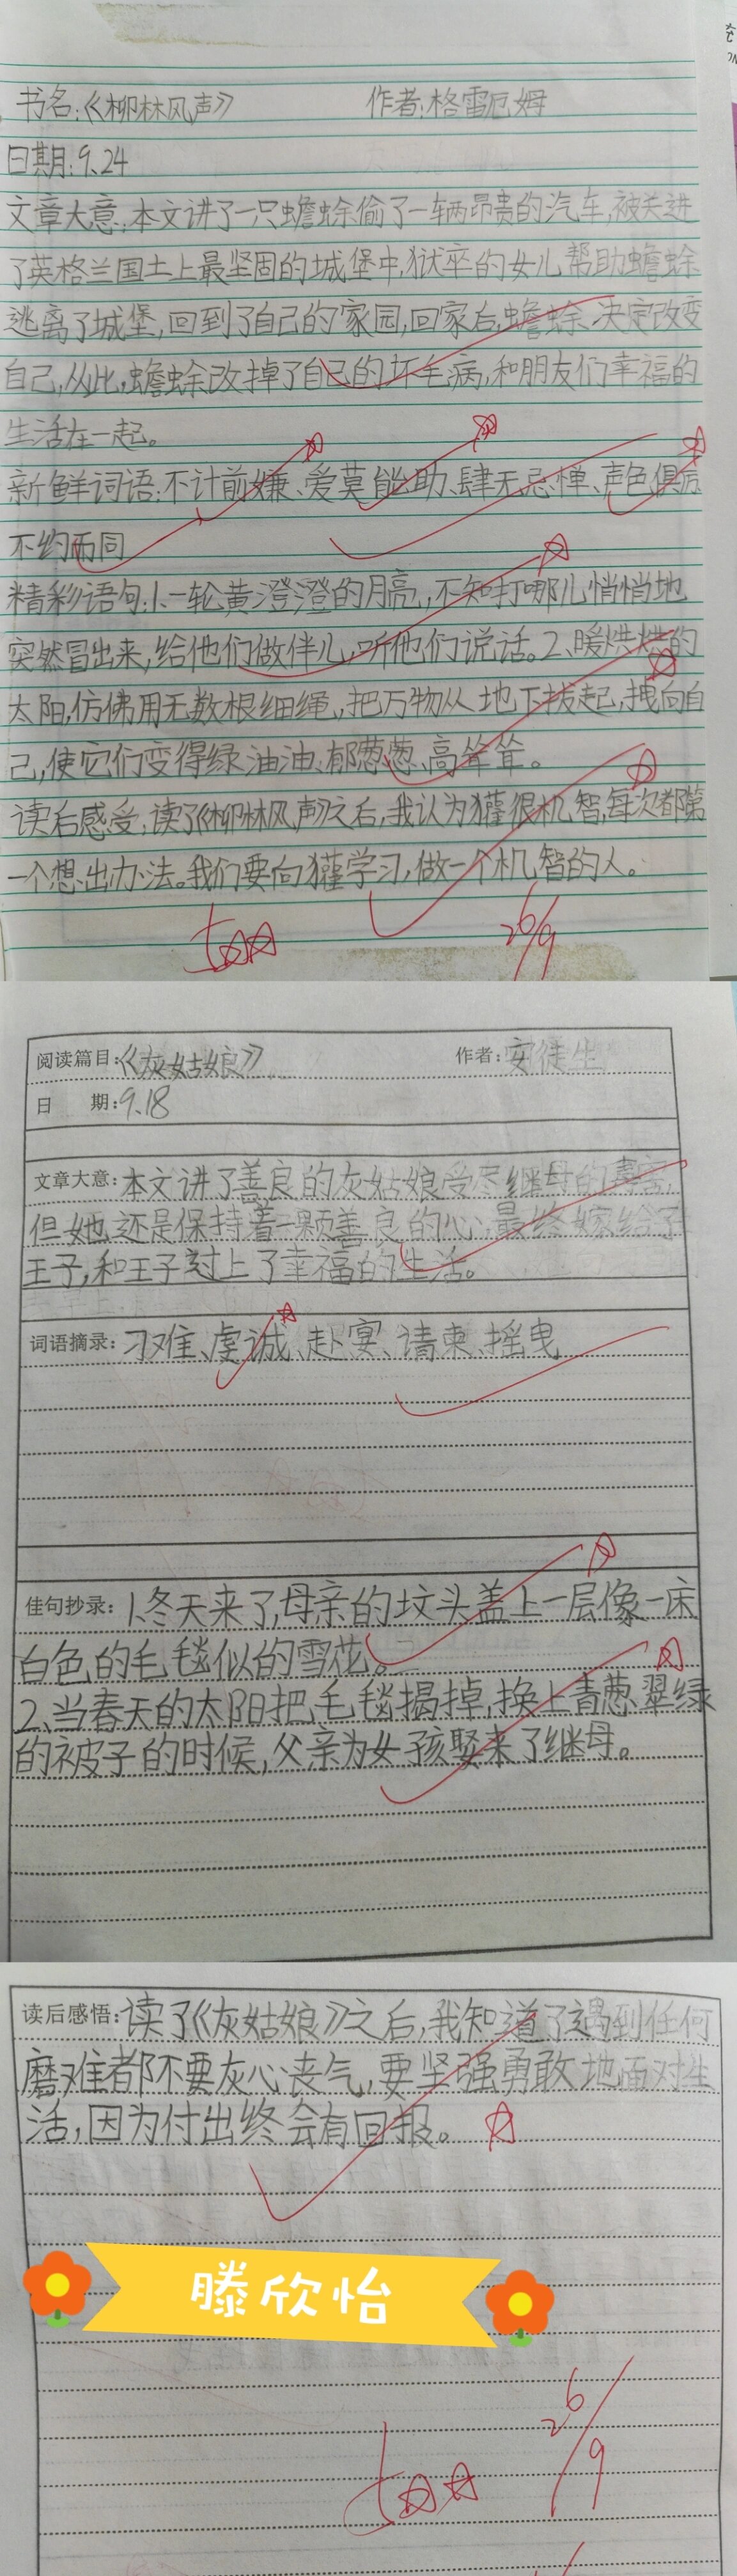 书名:《柳林风声》 作者:格雷厄姆
日期:9.24
文章大意:本文讲了一只蟾蜍偷了一辆昂贵的汽车,被关进
了英格兰国土上最坚固的城堡中,狱卒的女儿帮助蟾蜍
逃离了城堡,回到了自己的家园,回家后,蟾蜍决定改变
自己,从此,蟾蜍改掉了自己的坏毛病,和朋友们幸福的
生活在一起。
新鲜词语:不计前嫌、爱莫能助、肆无忌惮、声色俱厉
不约而同
精彩语句:1.一轮黄澄澄的月亮,不知打哪儿悄悄地
突然冒出来,给他们做伴儿,听他们说话。2、暖烘烘的
太阳,仿佛用无数根细绳,把万物从地下拔起,拽向自
己,使它们变得绿油油、郁葱葱、高耸耸。
读后感受:读了《柳林风声》之后,我认为獾很机智,每次都第
一个想出办法。我们要向獾学习,做一个机智的人。
26/9
阅读篇目:《灰姑娘》 作者:安徒生
日 期:9.18
文章大意:本文讲了善良的灰姑娘受尽继母的毒害,
但她还是保持着一颗善良的心,最终嫁给了
王子,和王子过上了幸福的生活。
词语摘录:刁难、虔诚、赴宴、请柬、摇曳
佳句抄录:1、冬天来了,母亲的坟头盖上一层像一床
白色的毛毯似的雪花。
2、当春天的太阳把毛毯揭掉,换上青葱翠绿
的被子的时候,父亲为女孩娶来了继母。
读后感悟:读了《灰姑娘》之后,我知道了遇到任何
磨难都不要灰心丧气,要坚强勇敢地面对生
活,因为付出终会有回报。
滕欣怡
26/9